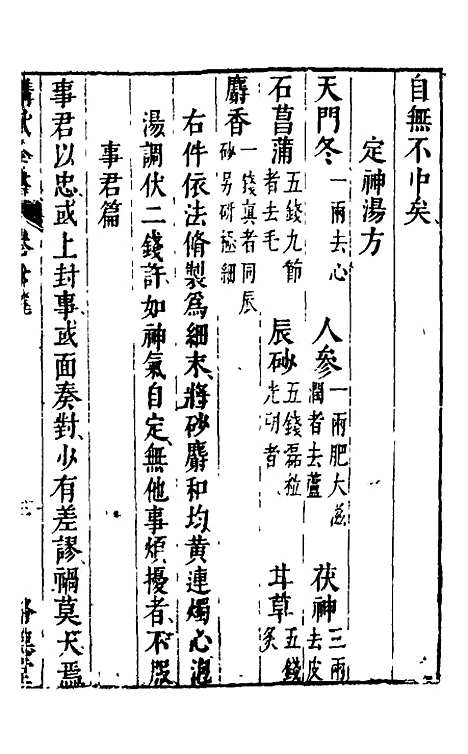 自無不中矣
定神湯方
天門冬一兩去心 人參一兩肥大滋潤者去蘆 茯神三兩去皮
石菖蒲五錢九節者去毛 辰砂五錢磊粒光明者 甘草五錢炙
麝香一錢真者同辰砂另研極細
右件依法脩製為細末將砂麝和均黃連燭心泡
湯調伏二錢許如神氣自定無他事煩擾者不服
事君篇
事君以忠或上封事或面奏對少有差謬禍莫大焉